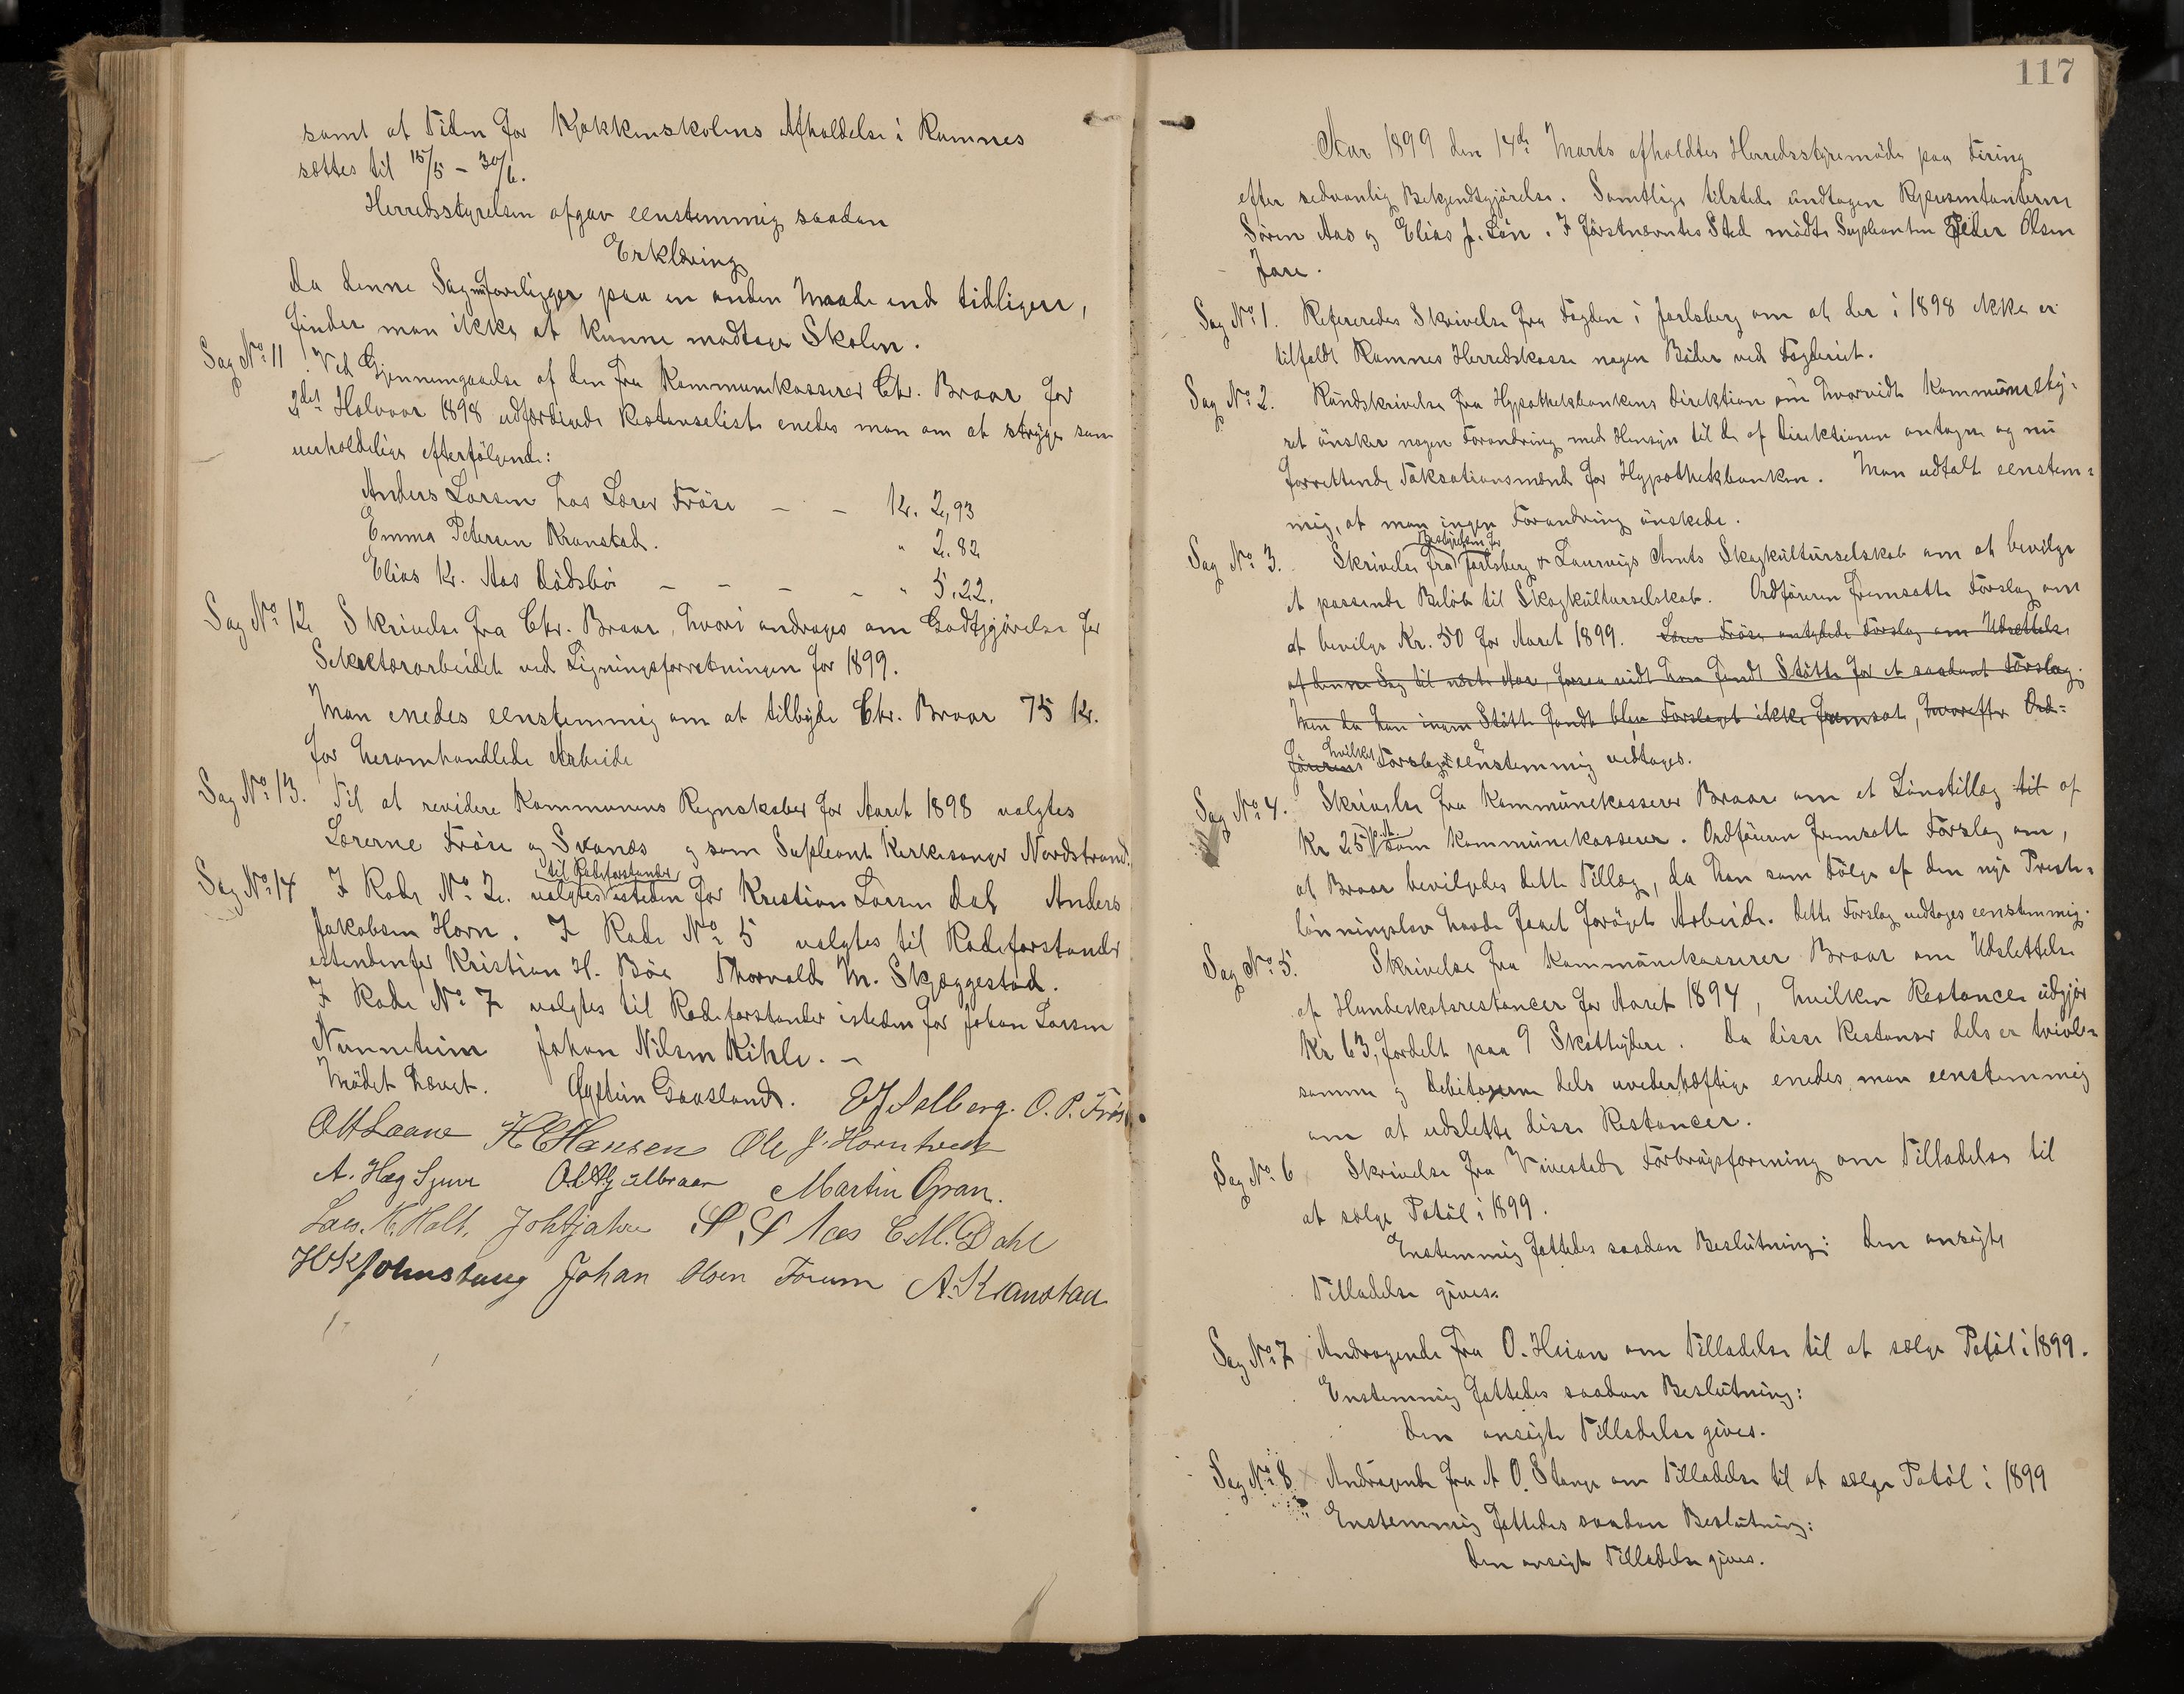 samt at Tiden for Kjøkkenskolens Afholdelse i Ramnes
sættes til 15/5 – 30/6.
Herredsstyrelsen afgav eenstemmig saadan
Erklæring
Da denne Sag nu foreligger paa en anden Maade end tidligere,
finder man ikke at kunne modtage Skolen.
Sag No 11. Ved Gjennemgaaelse af den fra Kommunekasserer Chr. Braar for
2det Halvaar 1898 udfærdigede Restanseliste enedes man om at stryge som
uerholdelige efterfølgende:
Anders Larsen hos Lærer Fröse – – Kr. 2,93
Emma Petersen Kranstad. " 2.82
Elias Kr. Aas Dødsbo – – – – " 5.22.
Sag No 12 Skrivelse fra Chr. Braar, hvori andrages om Godtgjörelse for
Sekretærarbeidet ved Ligningsforretningen for 1899.
Man enedes eenstemmig om at tilbyde Chr. Braar 75 Kr.
for heromhandlede Arbeide
Sag No 13. Til at revidere Kommunens Regnskaber for Aaret 1898 valgtes
Lærerne Fröse og Svanæs og som Supleant Kirkesanger Nordstrand.
til Rodeforstander
Sag No 14 I Rode No 2. valgtes isteden for Kristian Larsen Dal Anders
Jakobsen Horn. I Rode No 5 valgtes til Rodeforstander
istendenfor Kristian H. Böe Thorvald M. Skjæggestad.
I Rode No 7 valgtes til Rodeforstander isteden for Johan Larsen
Johan Nilsen Kihle. –
Mödet hævet. Eystein Gaasland. Solberg. O. P. Frös
Ott Laane H C Hansen Ole J. Horntvedt
A. Høg Martin Gran.
Lars. K. Holt. S. S Aas C. M. Dahl
Johan Olsen Forum A. Kranstad
117
Aar 1899 den 14de Marts afholdtes Herredsstyremöde paa Firing
efter sedvanlig Bekjendtgjörelse. Samtlige tilstede undtagen Repræsentanterne
Sören Aas og Elias J. Lön. I förstnævntes Sted mödte Supleanten Peder Olsen
Jare.
Sag No 1. Refereredes Skrivelse fra Fogden i Jarlsberg om at der i 1898 ikke er
tilfaldt Ramnes Herredskasse nogen Böder ved Fogderiet.
Sag No 2. Rundskrivelse fra Hypothekbankens Direktion om hvorvidt Kommunesty-
ret önsker nogen Forandring med Hensyn til de af Direktionen antagne og nu
forrettende Taksationsmænd for Hypothekbanken. Man udtalte eenstem-
mig, at man ingen Forandring önskede.
Bestyrelsen for
Sag No 3. Skrivelse fra Jarlsberg & Laurvigs Amts Skogkulturselskab om at bevilge
et passende Belöb til Skogkulturselskab. Ordföreren fremsatte Forslag om
at bevilge Kr. 50 for Aaret 1899. Lærer Fröse antydede Forslag om Udsættelse
af denne Sag til næste Aar, forsaavidt han fandt Stötte for et saadant Forslag.
Men da han ingen Stötte fandt blev Forslaget ikke fremsat, hvorefter Ord-
hvilket
förerens Forslag eenstemmig vedtages.
Sag No 4. Skrivelse fra Kommunekasserer Braar om et Lönstillæg til af
p. A.
Kr 25 som Kommunekasserer. Ordföreren fremsatte Forslag om,
at Braar bevilgedes dette Tillæg, da han som Fölge af den nye Preste-
lönningslov havde faaet foröget Arbeide. Dette Forslag vedtages eenstemmig.
Sag No 5. Skrivelse fra Kommunekasserer Braar om Udslettelse
af Hundeskatsrestancer for Aaret 1894, hvilken Restance udgjör
Kr 63, fordelt paa 9 Skatteydere. Da disse Restanser dels er tvivl-
somme og Debitorerne dels uvederhæftige enedes man eenstemmig
om at udslette disse Restancer.
Sag No 6 Skrivelse fra Vivestad Forbrugsforening om Tilladelse til
at sælge Patöl i 1899.
Enstemmig fattedes saadan Beslutning: Den ansögte
Tilladelse gives.
Sag No 7 Andragende fra O. Heian om Tilladelse til at sælge Patöl i 1899.
Enstemmig fattedes saadan Beslutning:
Den ansögte Tilladelse gives.
Sag No 8 Andragende fra A O. Stange om Tilladelse til at sælge Patöl i 1899
Enstemmig fattedes saadan Beslutning:
Den ansögte Tilladelse gives.